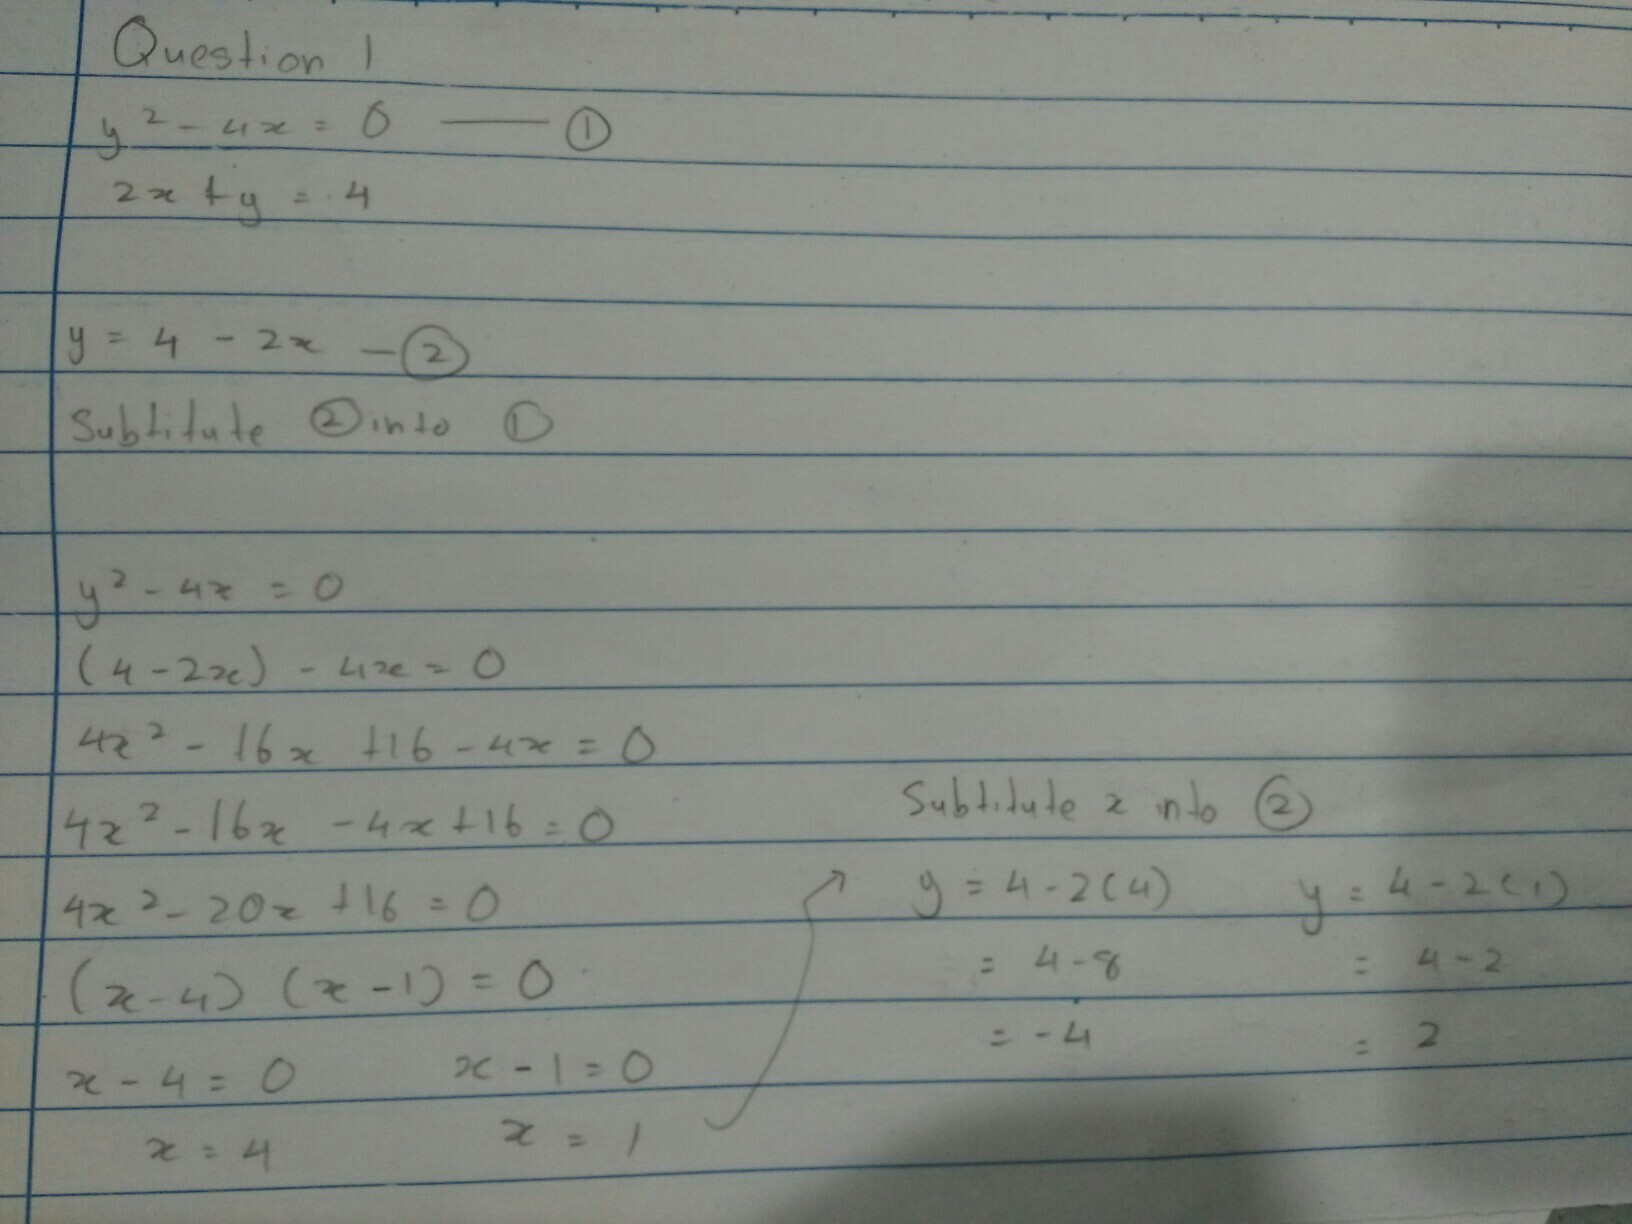 Question 1
y² - 4x = 0 —— ①
2x + y = 4
y = 4 - 2x — ②
Subtitute ② into ①
y² - 4x = 0
(4 - 2x) - 4x = 0
4x² - 16x + 16 - 4x = 0
4x² - 16x - 4x + 16 = 0
4x² - 20x + 16 = 0
(x - 4) (x - 1) = 0
x - 4 = 0 x - 1 = 0
x = 4 x = 1
Subtitute x into ②
y = 4 - 2(4) y = 4 - 2(1)
= 4 - 8 = 4 - 2
= -4 = 2